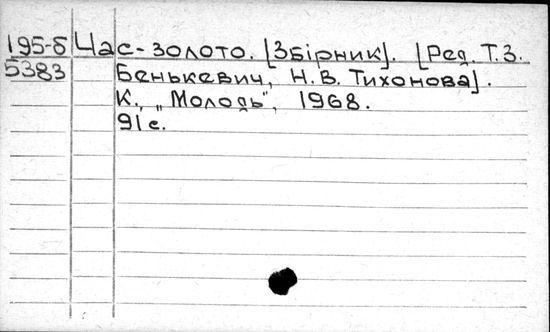 195-б Час-золото. [Збірник]. [Ред. Т.З.
5383 Бенькевич, Н.В. Тихонова].
К., „Молодь", 1968.
91 с.